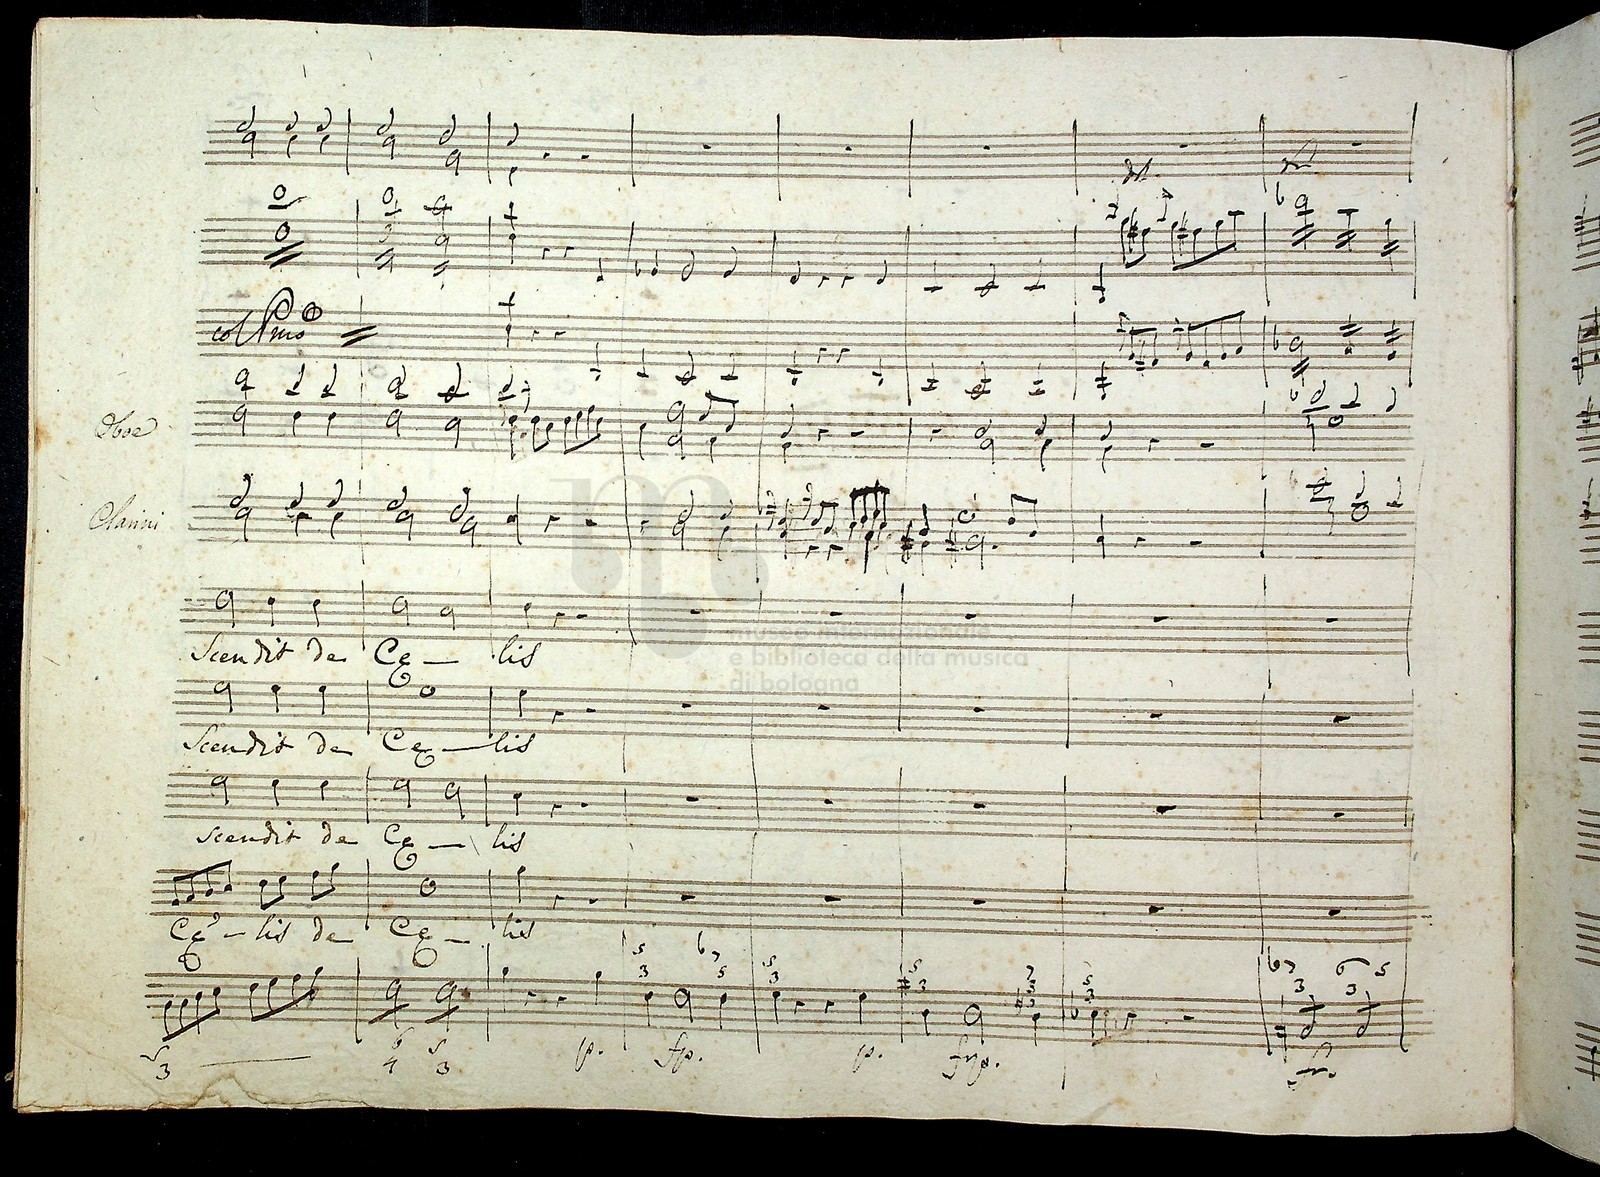 col Pmo
Oboe
Clarini
Scendit de Ce – lis
museo internazionale
e biblioteca della musica
di bologna
Scendit de Ce – lis
scendit de Ce – lis
Ce – lis de Ce – lis
5 6 7 5 5 7 5 6 7 6 5
3 5 3 3 5 3 3 3 3
5 6 5 p. fp. p. fp.
3 4 3